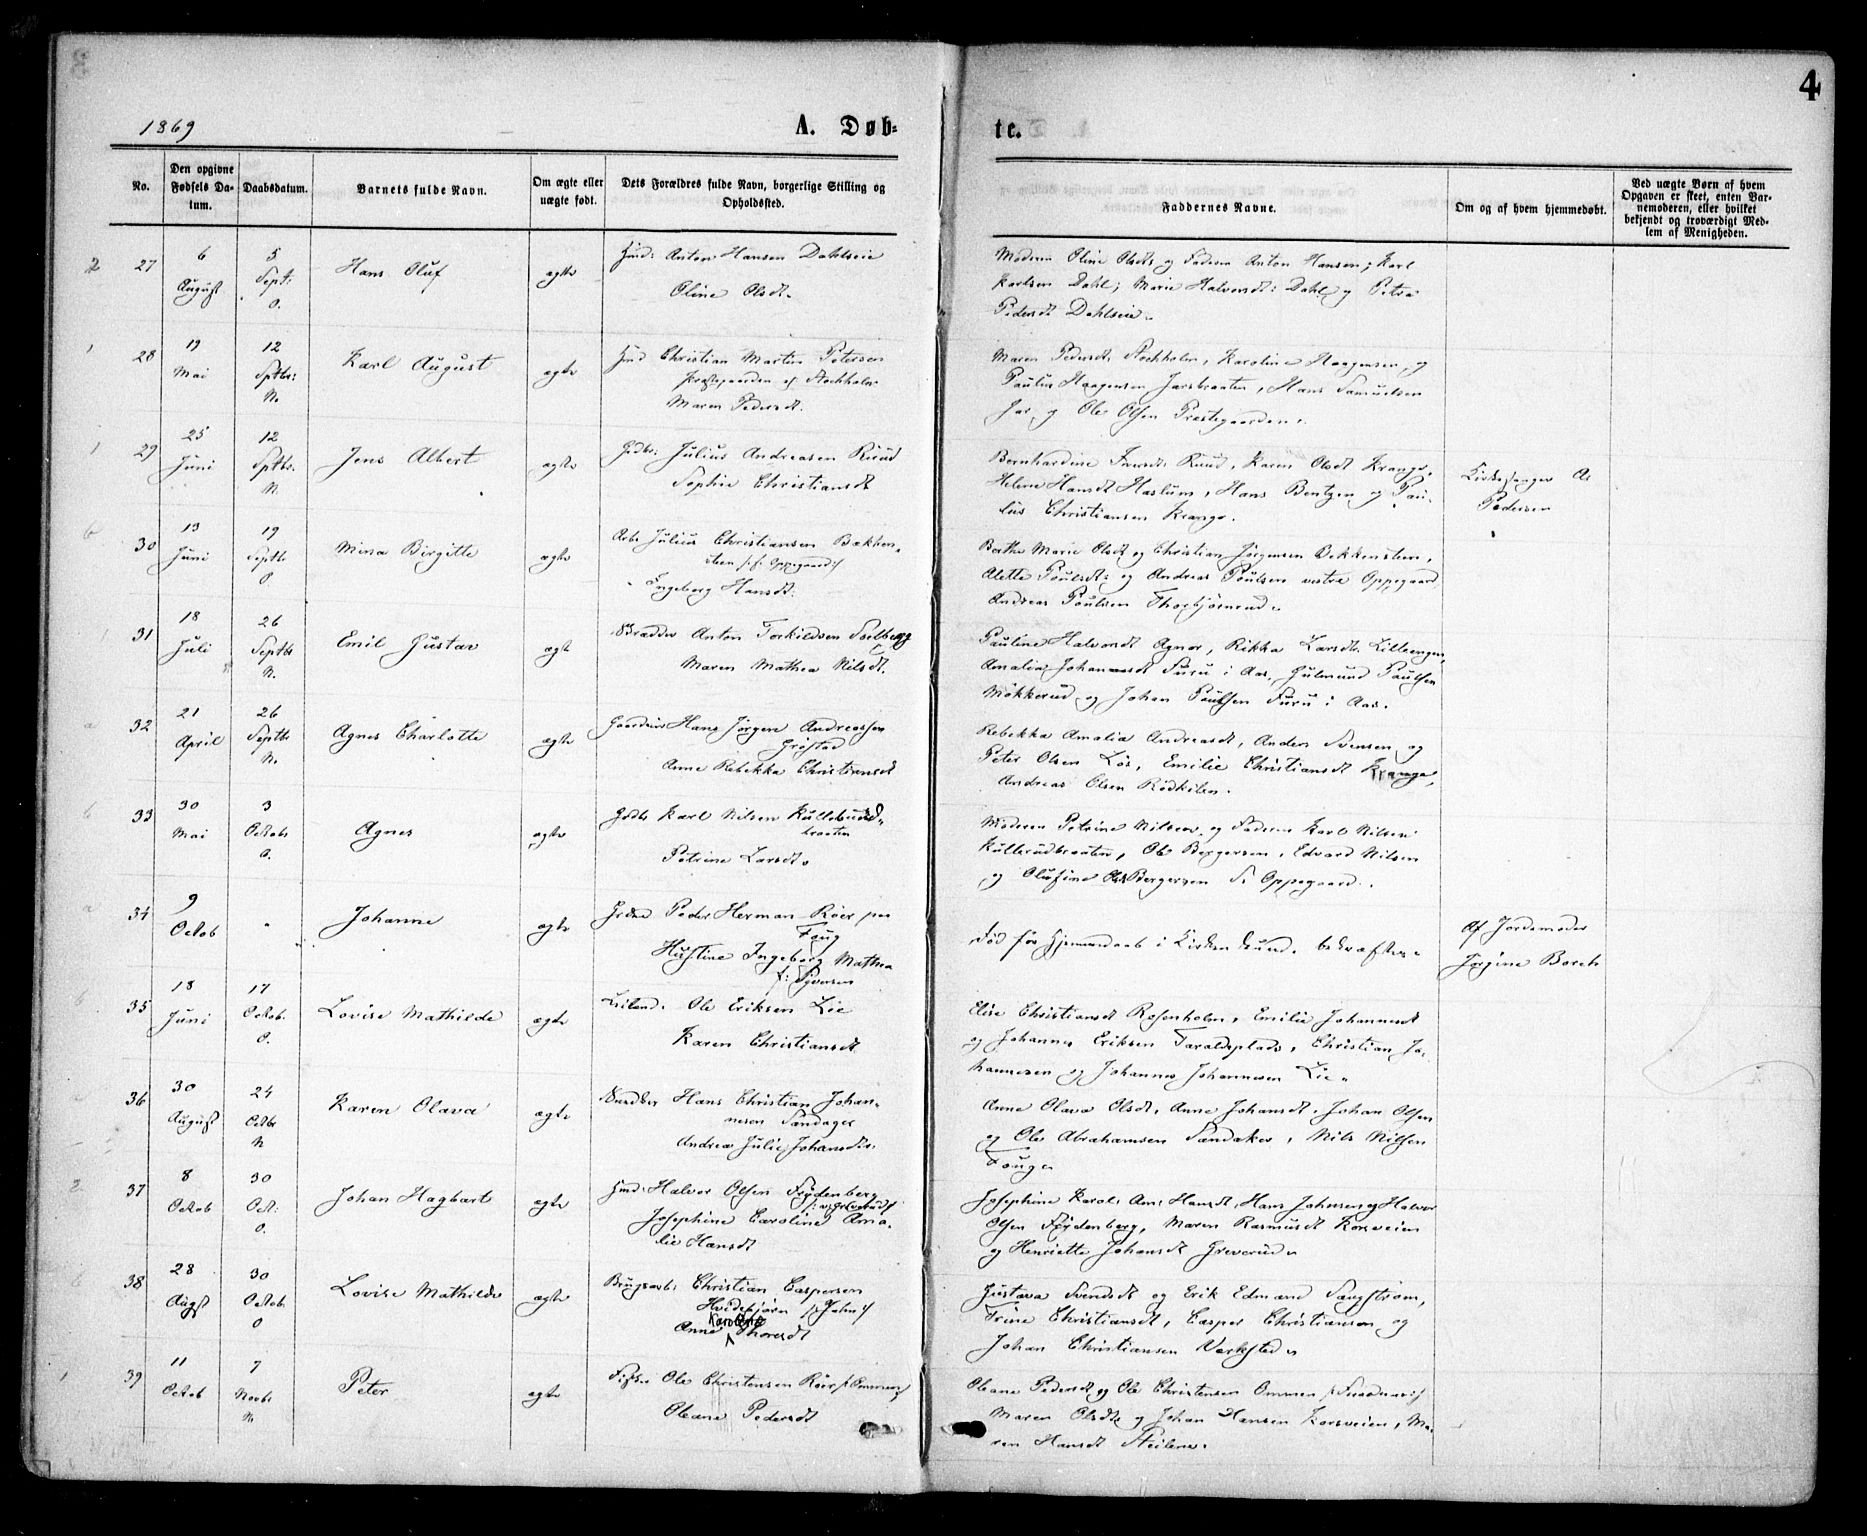 4
1869
A. Døb-
te.
No.
Den opgivne Fødsels Da-tum.
Daabsdatum.
Barnets fulde Navn.
Om ægte eller uægte født.
Dets Forældres fulde Navn, borgerlige Stilling og Opholdssted.
Faddernes Navne.
Om og af hvem hjemmedøbt.
Ved uægte Børn af hvem Opgaven er skeet, enten Bar-nemoderen, eller hvilket bekjendt og troværdigt Med-lem af Menigheden.
2 27 6 August 5 Sept: O. Hans Oluf ægte Hmd: Anton Hansen Dahlseie
Oline Olsdt.
Moderen Oline Olsdt og Faderen Anton Hansen, Karl
Karlsen Dahl, Marie Halvorsdt: Dahl og Petra
Pedersdt Dahlseie.
1 28 19 Mai 12 Sptbr: N. Karl August ægte Hmd Christian Martin Petersen
Præstegaarden af Stockholm
Maren Pedersdt.
Maren Pedersdt. Stockholm, Karoline Haagensen, og
Paulin Haagensen Jarsbraaten, Hans Samuelsen
Jar, og Ole Olsen Prestegaarden.
1 29 25 Juni 12 Sptbr. N. Jens Albert ægte Gdbr: Julius Andreasen Ruud
Sophie Christiansdt
Bernhardine Jensdt Ruud, Karen Olsdt Krange,
Helene Hansdt Haslum, Hans Bentzen og Pau-
lus Christiansen Krange.
Kirkesanger A.
Pedersen
6 30 13 Juni 19 Septbr O. Mina Birgitte ægte Arb. Julius Christiansen Bækken-
steen /: f: Oppegaard :/
Ingeborg Hansdt.
Berthe Marie Olsdt og Christian Jørgensen Bekkensteen,
Alette Poulsdt og Andreas Poulsen vestre Oppegaard
Andreas Poulsen Thorbjørnrud.
1 31 18 Juli 26 Septbr N. Emil Gustav ægte Skrædder Anton Torkildsen Solberg
Maren Mathea Nilsdt.
Pauline Halvorsdt Agnor, Rikka Larsdt. Lilleengen,
Amalia Johannesdt Furu i Aas, Gulmund Paulsen
Møkkerud og Johan Poulsen Furu i Aas.
a 32 21 April 26 Septbr N. Agnes Charlotte ægte Gaardeier Hans Jørgen Andreassen
Grøstad
Anne Rebekka Christiansdt
Rebekka Amalia Andreasdt, Anders Svensen og
Peter Olsen Løs, Emilie Christiansdt Krange,
Andreas Olsen Rødkilen.
6 33 30 Mai 3 Octobr O. Agnes ægte Gdbr Karl Nilsen Kullerud-
braaten
Petrine Larsdt.
Moderen Petrine Nilsen og Faderen Karl Nilsen
Kullerudbraaten, Ole Bergersen, Edvard Nilsen
og Olufine Bergersen S. Oppegaard.
a 34 9 Octob " Johanne ægte Peder Herman Røer paa
Foug
Hustine Ingeborg Mathea
f: Syversen
Død før Hjemmedaab i Kirken kund. bekræftes.
Af Jordemoder
Jørgine Borch
6 35 18 Juni 17 Octob. O. Lovise Mathilde ægte Leilend. Ole Eriksen Lie
Karen Christiansdt.
Elise Christiansdt Rosenholm, Emilie Johannesdt
og Johannes Eriksen Taraldsplads, Christian Jo-
hannesen og Johannes Johannesen Lie.
36 30 August 24 Octbr N Karen Olava ægte Hans Christian Johan-
nesen Sandager
Andrea Julie Johansdtr.
Anne Olava Olsdt, Anne Johansdt, Johan Olsen
og Ole Abrahamsen Sandaker, Nils Nilsen
Foug.
2 37 8 Octob 30 Oct: O. Johan Hagbart ægte Hmd: Halvor Olsen Frydenberg
Josephine Caroline Ama-
lie Hansdt
Josephine Karol. Am: Hansdt, Hans Johnsen og Halvor
Olsen Frydenberg, Maren Rasmusdt Korsveien
og Henriette Johansdt Greverud.
6 38 28 Augst 30 Octob. O Lovise Mathilde ægte Christian Caspersen
Hvidebjørn
Karoline
Anne Thorsdt
Gustava Svendsdt og Erik Edmand Sangstrøm,
Trine Christiansdt, Casper Christiansen og
Johan Christiansen Værksted.
1 39 11 Octob 7 Novbr N. Peter ægte Ole Christensen Røer /: Ommen :/
Oleane Pedersdt
Oleane Pedersdt og Ole Christensen Ommen
Maren Olsdt og Johan Hansen Korsveien, Ma-
ren Hansdt Steilene.